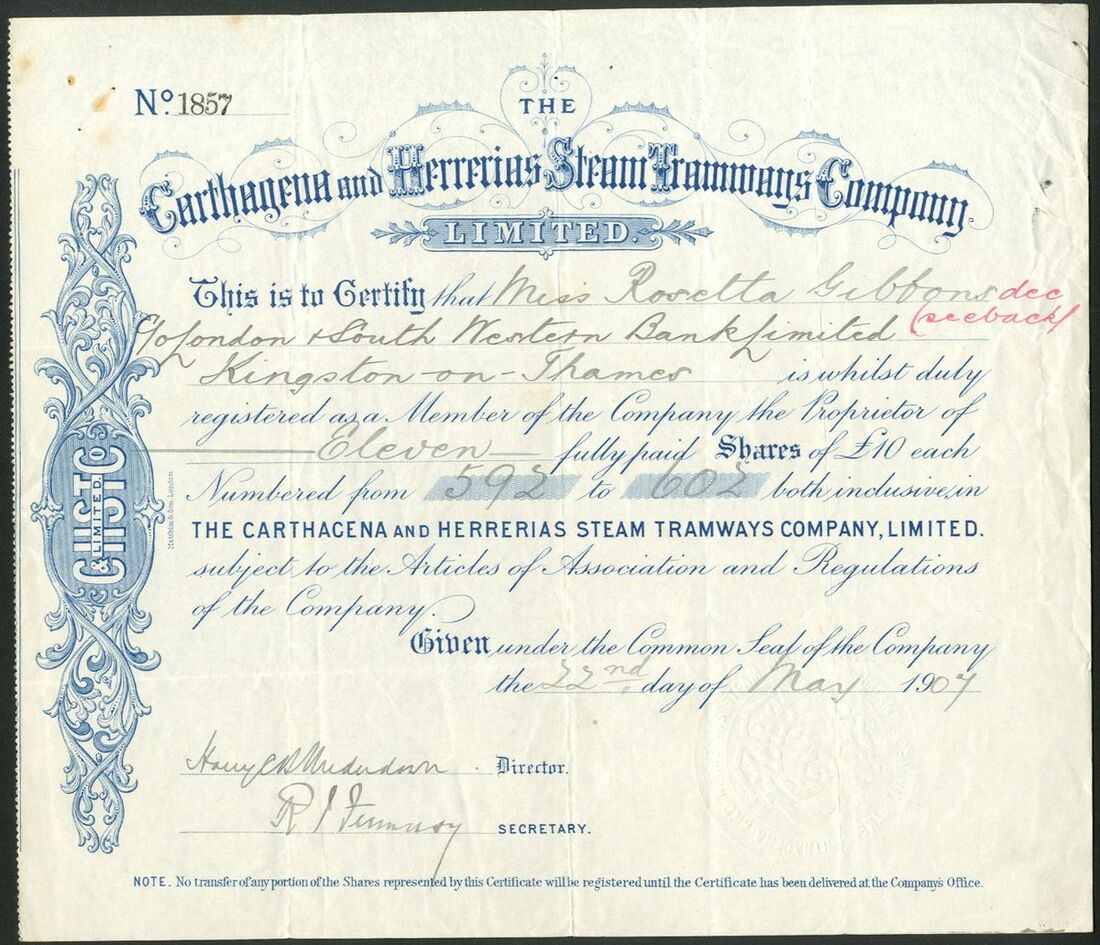 Nº 1857
THE
Carthagena and Herrerias Steam Tramways Company
LIMITED.
This is to Certify that Miss Rosetta Gibbons dec
C/o London & South Western Bank Limited (see back)
Kingston-on-Thames is whilst duly
registered as a Member of the Company the Proprietor of
Eleven fully paid Shares of £10 each
Numbered from 592 to 602 both inclusive, in
THE CARTHAGENA AND HERRERIAS STEAM TRAMWAYS COMPANY, LIMITED.
subject to the Articles of Association and Regulations
of the Company.
Given under the Common Seal of the Company
the 22nd day of May 1907
Director.
SECRETARY.
NOTE. No transfer of any portion of the Shares represented by this Certificate will be registered until the Certificate has been delivered at the Company's Office.
& Son London.
LIMITED.